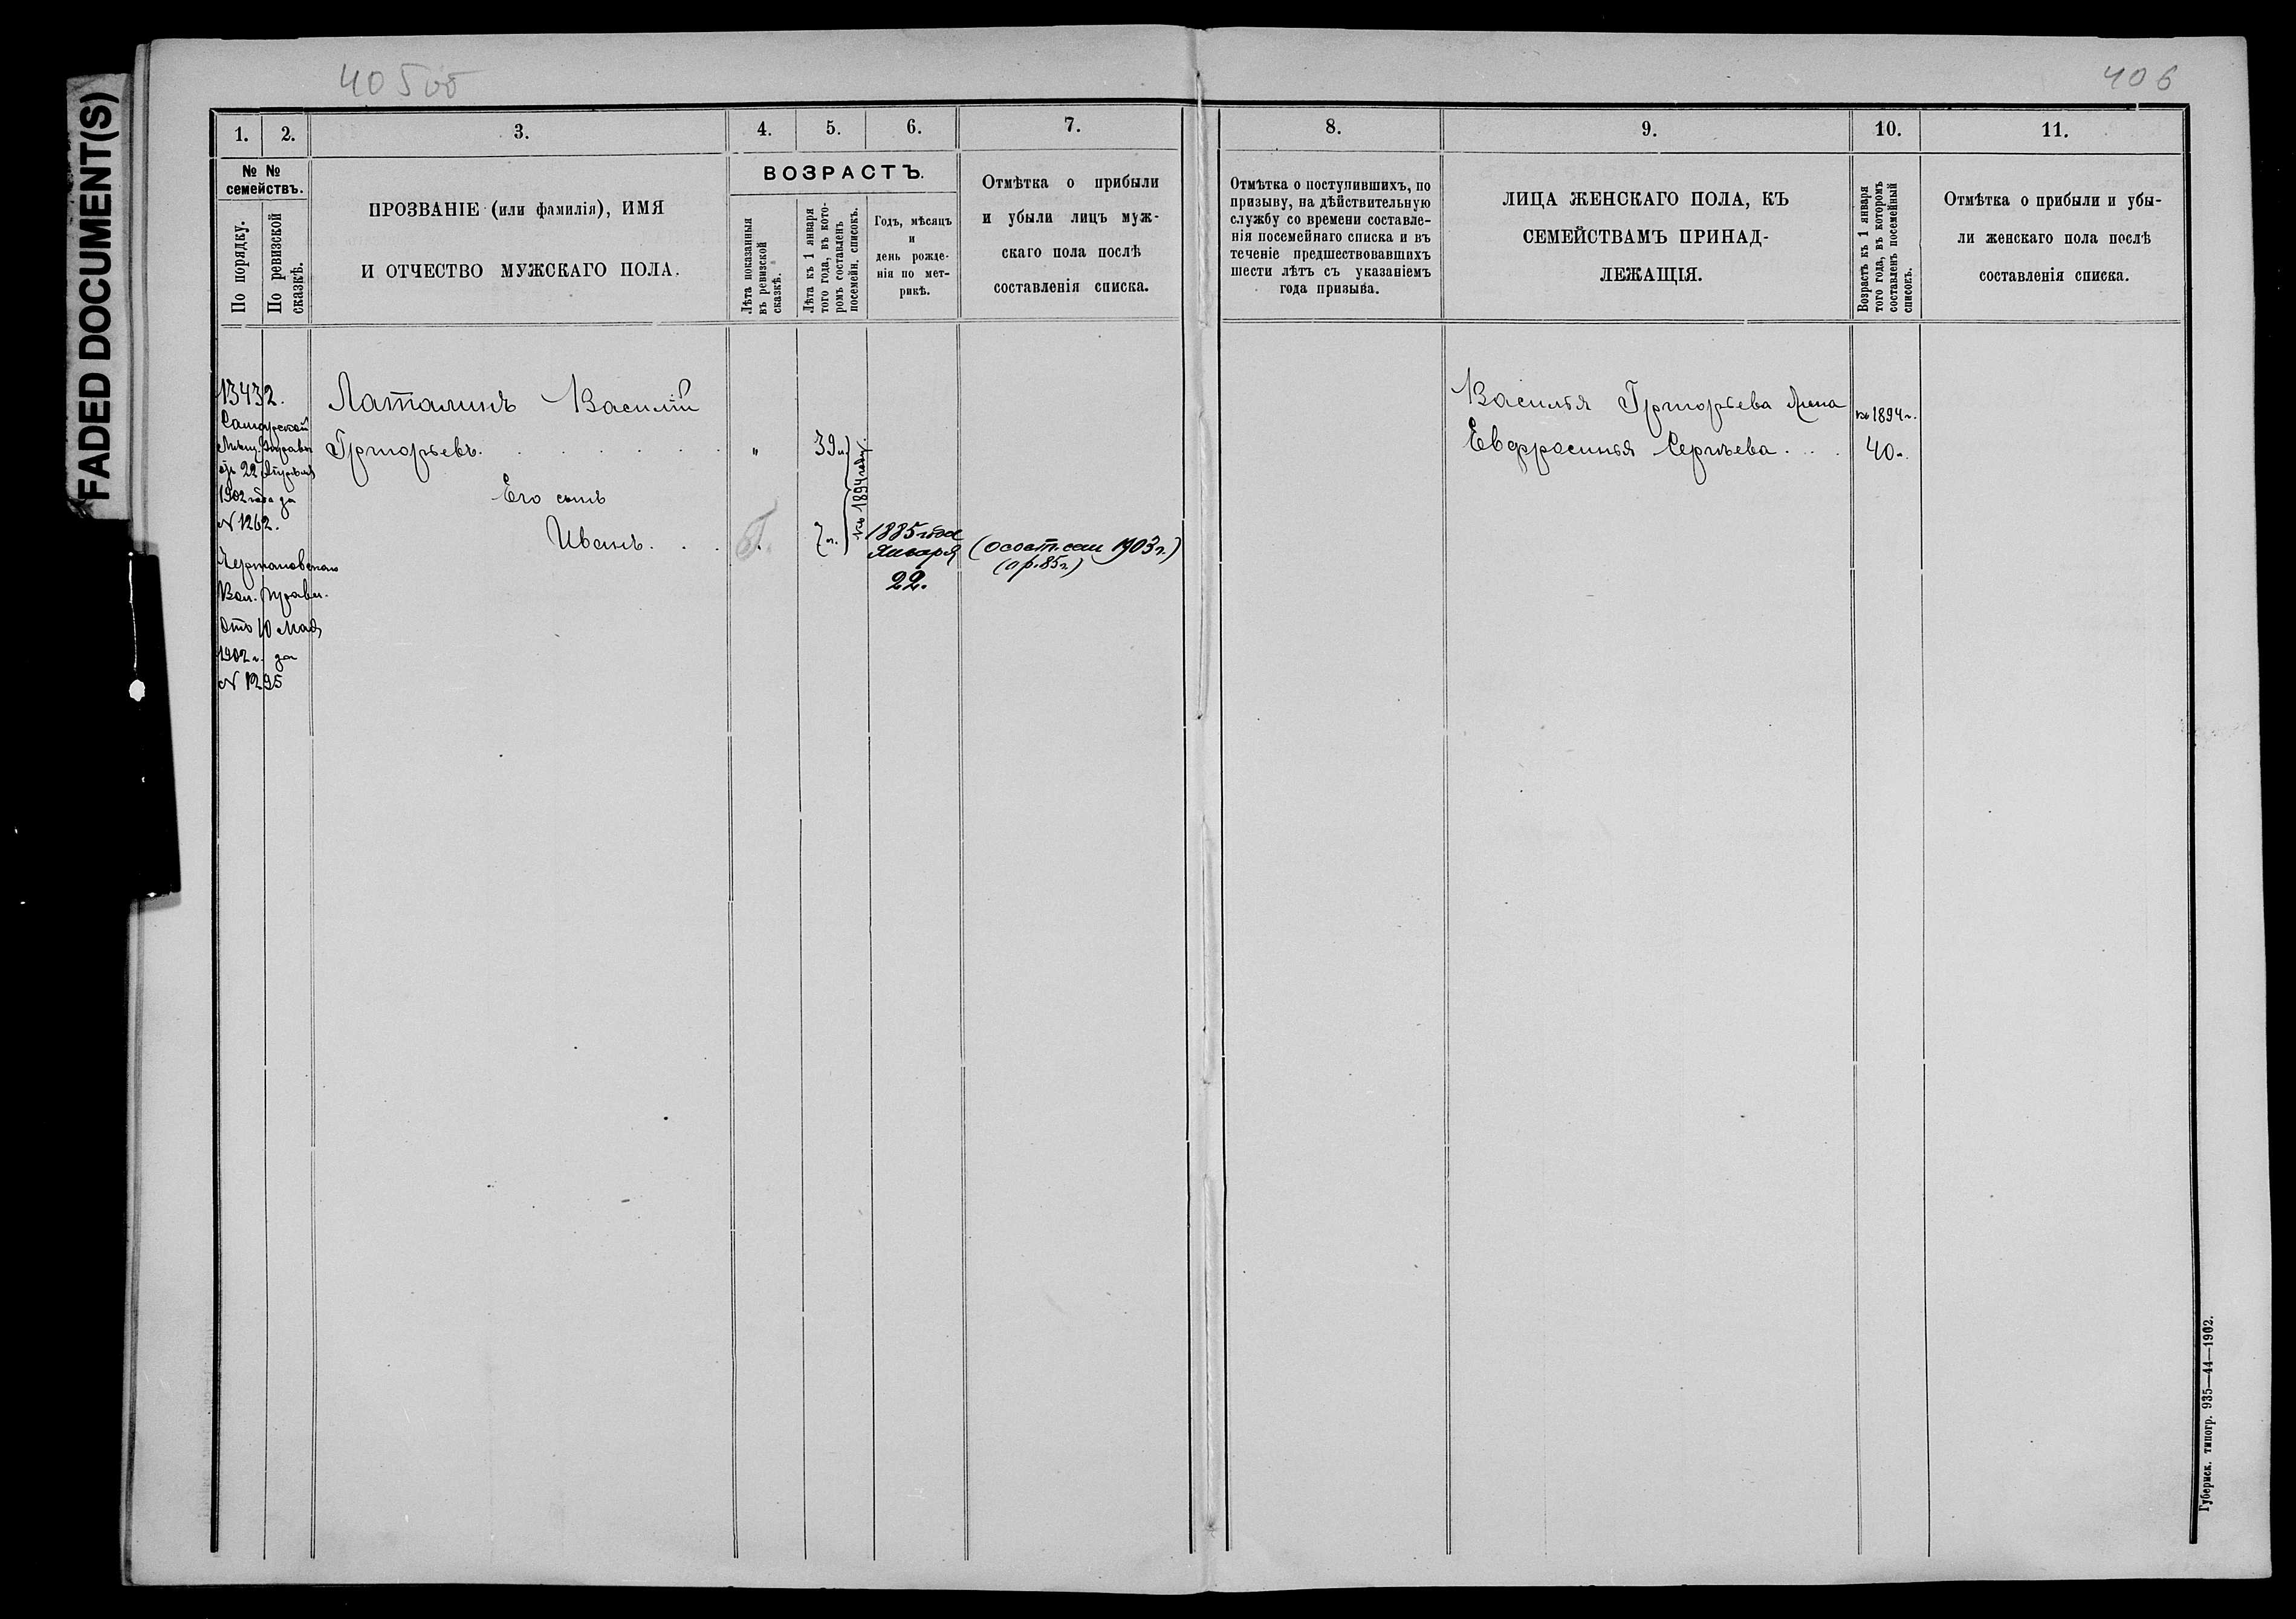 FADED DOCUMENT(S)
405 об
406
1. 2. 3. 4. 5. 6. 7.
№ №
семействъ.
По порядку.
По ревизской
сказкѣ.
ПРОЗВАНІЕ (или фамилія), ИМЯ
И ОТЧЕСТВО МУЖСКАГО ПОЛА.
ВОЗРАСТЪ.
Лѣта показанныя
въ ревизской
сказкѣ.
Лѣта къ 1 января
того года, въ кото-
ромъ составленъ
посемейн. списокъ.
Годъ, мѣсяцъ
и
день рожде-
нія по мет-
рикѣ.
Отмѣтка о прибыли
и убыли лицъ муж-
скаго пола послѣ
составленія списка.
13432.
Самарской
Мѣщ. Управы
отъ 22 Апрѣля
1902 года за
№ 1262.
Вол. Правл.
отъ 10 Мая
1902 г. за
№ 1295
Латалинъ Василій
Григорьевъ. " 39 л.
Его сынъ
Иванъ. 7 л.
къ 1894 году.
1885 года
Января
22.
1903 г.)
(о р. 85 г.)
8. 9. 10. 11.
Отмѣтка о поступившихъ, по
призыву, на дѣйствительную
службу со времени составле-
нія посемейнаго списка и въ
теченіе предшествовавшихъ
шести лѣтъ съ указаніемъ
года призыва.
ЛИЦА ЖЕНСКАГО ПОЛА, КЪ
СЕМЕЙСТВАМЪ ПРИНАД-
ЛЕЖАЩІЯ.
Возрастъ къ 1 января
того года, въ которомъ
составленъ посемейный
списокъ.
Отмѣтка о прибыли и убы-
ли женскаго пола послѣ
составленія списка.
Василья Григорьева жена къ 1894 г.
Евфросинья Сергѣева. . . 40.
Губернск. типогр. 935—44—1902.